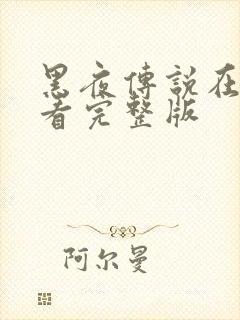 黑夜傳說在
看完整版
阿尔曼